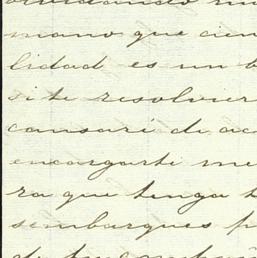 olvidando
mano que cien
lidad es un b
si te resolvier
causaré de ac
encargarte me
ra que tenga t
sembarques p